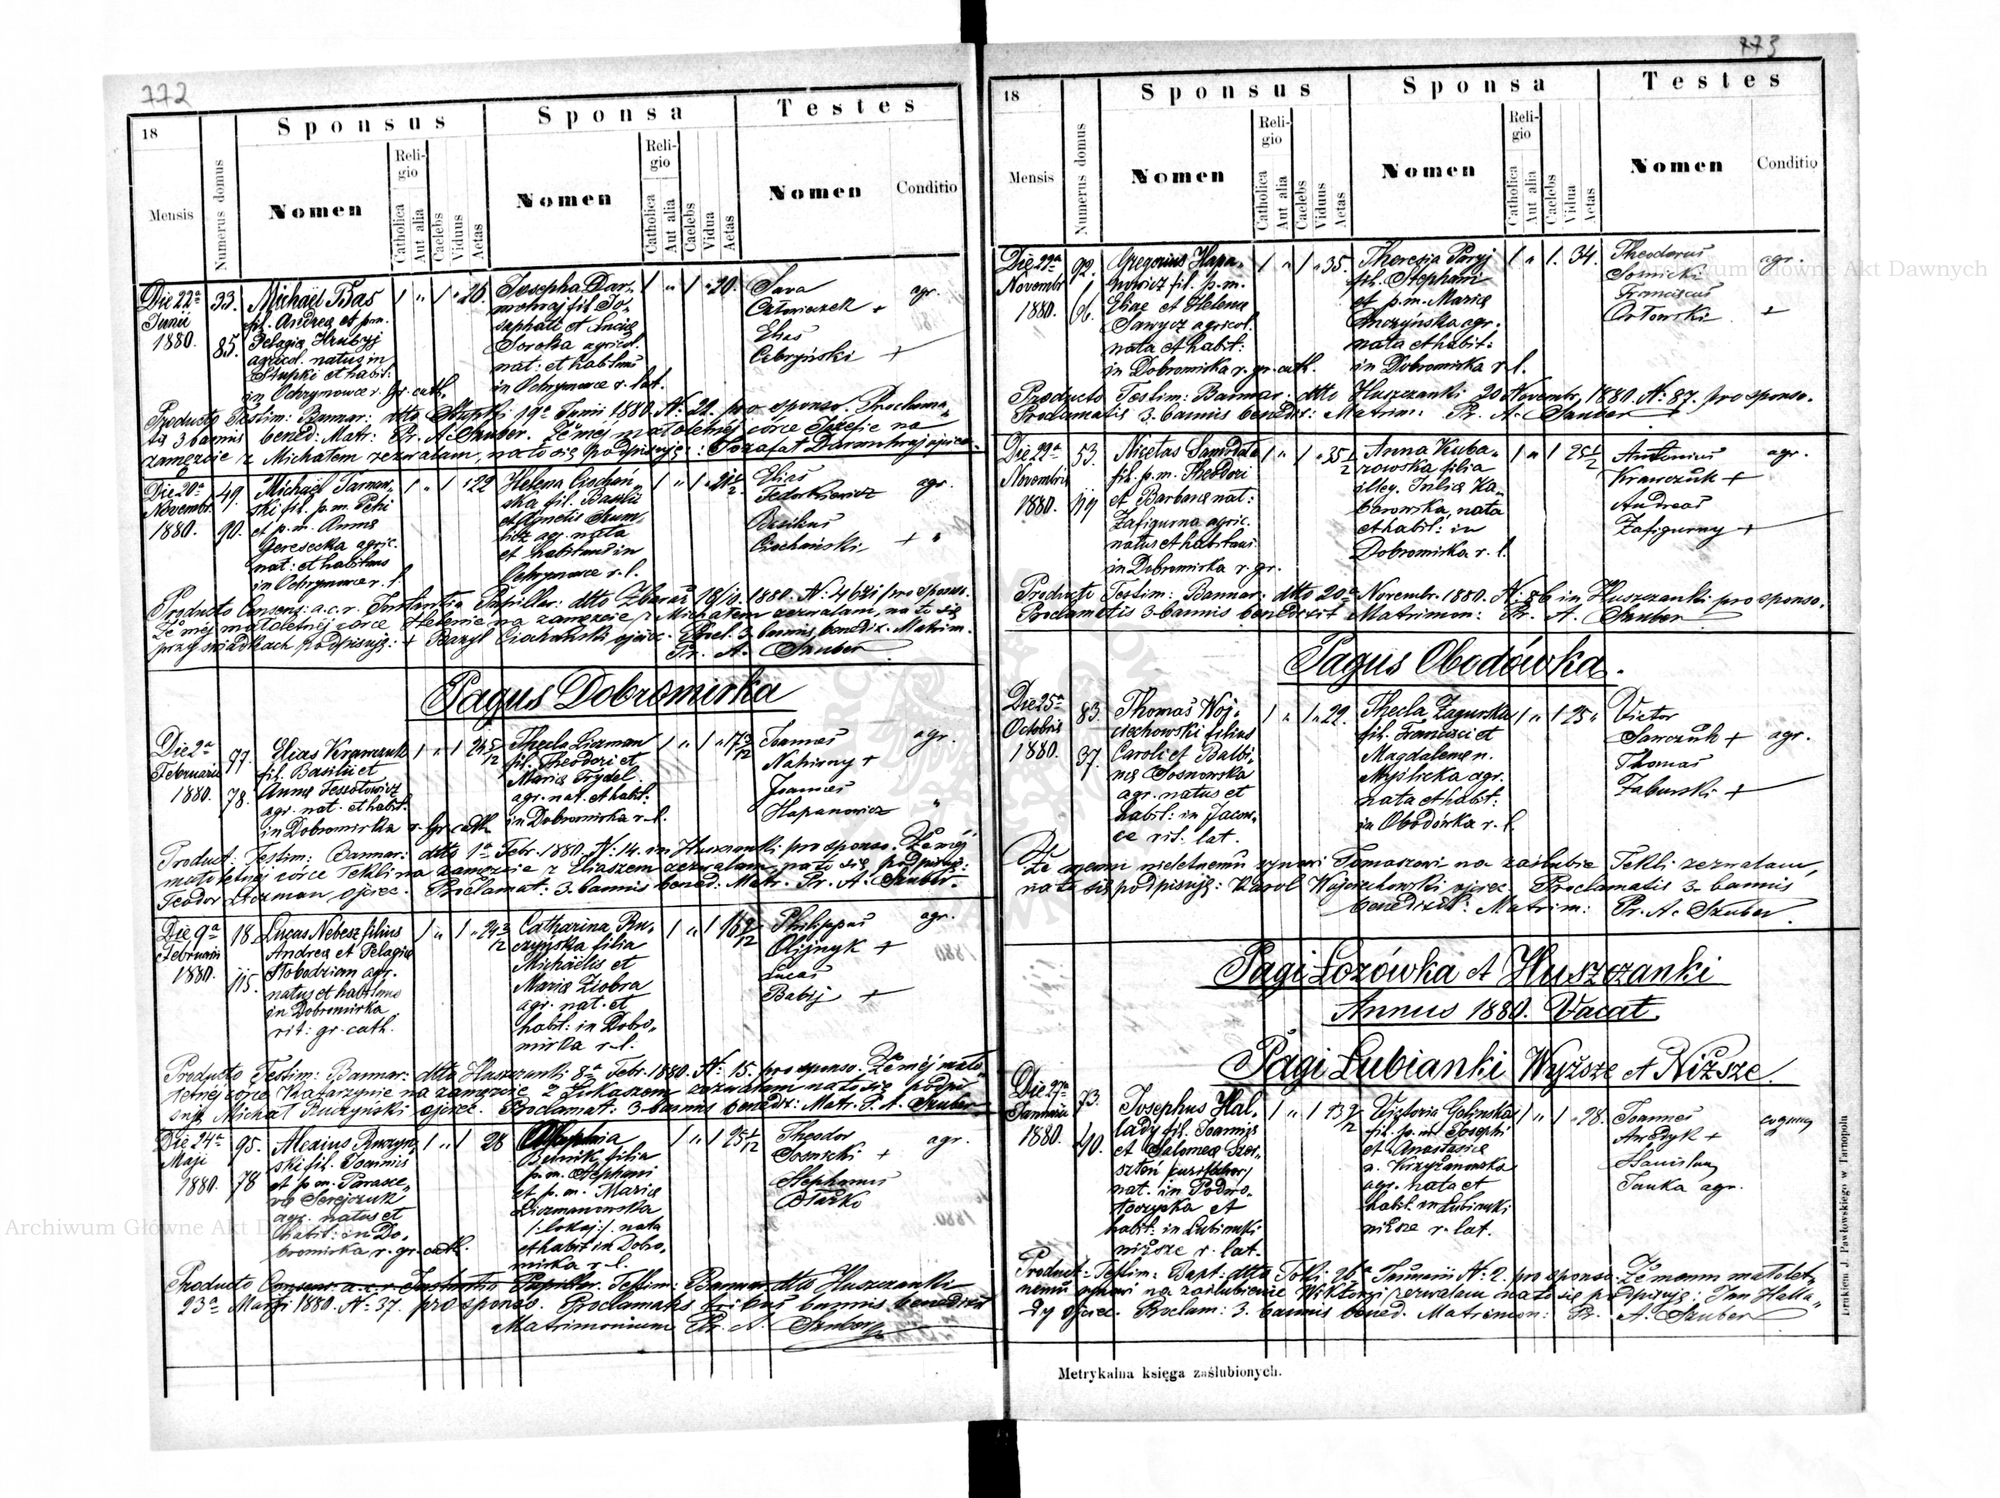 772
18
Sponsus
Sponsa
Testes
Mensis
Numerus domus
Nomen
Religio
Catholica
Aut alia
Caelebs
Viduus
Aetas
Nomen
Religio
Catholica
Aut alia
Caelebs
Vidua
Aetas
Nomen
Conditio
Die 22a
Junii
1880.
33.
85.
Michaël Bas
fil. Andreae et p.m.
Pelagia Hrubyj
agricol. natus in
Stupki et habit:
in Ochrymowce r. gr. cath.
1 " 1 " 26.
Josepha Dar-
mohraj fil. Jo-
saphati et Luciae
Soroka agricol.
nat: et habitans
in Ochrymowce r. lat.
1 " 1 " 20.
Sava
+
Elias
Cebryński +
agr.
Producto Testim: Bannar: dtto Stupki 19a Junii 1880. N: 22. pro sponso. Proclama-
tis 3 bannis bened: Matr: Pr. A. Szuber. Że mej małoletniej córce Józefie na
zamęzcie z Michałem zezwalam, na to się podpisuję: Jozafat Darmohraj ojciec.
Die 20a
Novembr.
1880.
49.
90.
Michaël Tarnaw-
ski fil. p.m. Petri
et p.m. Anna
agric.
nat: et habitans
in Ochrymowce r. l.
1 " 1 " 22
Helena Ciochań-
ska fil. Basilii
et Agnetis Szum-
agr. nata
et habitans in
Ochrymowce r. l.
1 " 1
Elias
Fedorkiewicz
Basilius
Ciochański +
agr.
"
Producto Consens: a.c.r. Instantia Pupillar: dtto Zbaraż 18/10. 1880. N: 4621 pro sponso.
Że mej małoletniej córce Helenie na zamęzcie z Michałem zezwalam, na to się
przy świadkach podpisuję: + Bazyl Ciochański ojciec. Procl. 3. bannis benedix. Matrim.
Pr. A. Szuber
Pagus Dobromirka
Die 2a
Februarii
1880.
77.
78.
Elias Krawczuk
fil. Basilii et
Anna
agr. nat. et habit:
in Dobromirka r. gr. cath.
1 " 1 24 5/12
Thecla Liczman
fil. Theodori et
Maria Frydel
agr. nat. et habit:
in Dobromirka r. l.
1 " 1 " 17 3/12
Joannes
Nahirny +
Joannes
Hapanowicz
agr.
"
Product: Testim: Bannar: dtto 1a Febr. 1880. N: 14. in Huszczanki pro sponso. Że mej
małoletniej córce Tekli na zamęzcie z Eliaszem zezwalam, na to się podpisuję:
Teodor Liczman ojciec. Proclamat: 3. bannis bened: Matr. Pr. A. Szuber.
Die 9a
Februarii
1880.
18.
115.
Lucas Nebesz filius
Andrea et Pelagia
Słobodzian agr.
natus et habitans
in Dobromirka
rit: gr. cath.
1 " 1 " 24 3/12
Catharina Ru-
czyńska filia
Michaëlis et
Maria Ziobra
agr. nat. et
habit: in Dobro-
mirka r. l.
1 " 1 16 9/12
Philippus
Olijnyk +
Lucas
Babij +
agr.
Producto Testim: Bannar: dtto Huszczanki 8a Febr. 1880. N: 15. pro sponso. Że mej mało-
letniej córce Katarzynie na zamęzcie z Łukaszem zezwalam na to się podpi-
suję Michał Ruczyński ojciec. Proclamat. 3. bannis benedx: Matr. P. A. Szuber
Die 24a
Maji
1880.
95.
78
Alexius Ruczyn-
ski fil. Joannis
et p.m. Parasce-
va Serejczuk
agr. natus et
habit: in Do-
bromirka r. gr. cath.
1 " 1 28
filia
p.m. Stephani
et p.m. Maria
Liczmanowska
nata
et habit in Dobro-
mirka r. l.
1 " 1 25 1/12
Theodor
Sosnicki +
Stephanus
agr.
Producto Consens: a.c.r. Instantia Pupillar. Testim: Bannar dtto Huszczanki
23a Maji 1880. N: 37. pro sponso. Proclamatis tribus bannis benedixit
Matrimonium Pr. A. Szuber
773
18
Sponsus
Sponsa
Testes
Mensis
Numerus domus
Nomen
Religio
Catholica
Aut alia
Caelebs
Viduus
Aetas
Nomen
Religio
Catholica
Aut alia
Caelebs
Vidua
Aetas
Nomen
Conditio
Die 22a
Novembr
1880.
92.
Gregorius Hapa-
nowicz fil. p.m.
Eliae et Helena
Sawycz agricol.
nata et habit:
in Dobromirka r. gr. cath.
1 " 1 " 35.
Theresia Paryj
fil. Stephani
et p.m. Maria
agr.
nata et habit:
in Dobromirka r. l.
1 " 1. 34.
Theodorus
Sosnicki
Franciscus
Orłowski +
agr.
Producto Testim: Bannar: dtto Huszczanki 20 Novembr. 1880. N: 87. pro sponso.
Proclamatis 3. bannis benedix: Matrim: Pr. A. Szuber
Die 22a
Novembris
1880.
53.
119
Nicetas
fil. p.m. Theodori
et Barbara nat:
Zafigurna agric.
natus et habitans
in Dobromirka r. gr.
1 " 1 " 25 1/2
Anna Kuba-
rowska filia
illeg. Julia Ka-
barowska, nata
et habit: in
Dobromirka r. l.
1 " 1 25 1/2
Antonius
Krawczuk +
Andreas
Zafigurny +
agr.
Producto Testim: Bannar: dtto 20a Novembr. 1880. N: 86 in Huszczanki pro sponso.
Proclamatis 3 bannis benedixit Matrimon: Pr. A. Szuber
Pagus Obodówka.
Die 25a
Octobris
1880.
83.
37.
Thomas Woj-
ciechowski filius
Caroli et Balbi-
na Sosnowska
agr. natus et
habit: in Jacow-
ce rit. lat.
1 " 1 " 22.
Thecla Zagurska
fil. Francisci et
Magdalena n.
Myslicka agr.
nata et habit:
in Obodówka r. l.
1 " 1 25 "
Victor
Sawczuk + agr.
Thomas
Zaburski +
Że memu nieletniemu synowi Tomaszowi na zaślubie Tekli zezwalam,
na to się podpisuję: Karol Wojciechowski ojciec. Proclamatis 3. bannis
benedixit: Matrim: Pr. A. Szuber.
Pagi Łozówka et Huszczanki
Annus 1880. Vacat.
Pagi Łubianki Wyższe et Niższe.
Die 27a
Januarii
1880.
73.
Josephus Hal-
lady fil. Joannis
et Salomea
nat. in Podwo-
łoczyska et
habit: in Łubianki
niższe r. lat.
1 " 1
Victoria Golinska
fil. p.m. Josephi
et Anastasia
a. Krzyżanowska
agr. nata et
habit. in Łubianki
niższe r. lat.
1 " 1 " 28.
Joannes
+
Stanislaus
agr.
Product: Testim: Bapt: dtto Toki 26a Januarii N: 2. pro sponso. Że memu małolet-
niemu synowi na zaślubienie Wiktorji zezwalam na to się podpisuję: Jan Halla-
dy ojciec. Proclam: 3. bannis bened. Matrimon: Pr. A. Szuber
Metrykalna księga zaślubionych.
Drukiem J. Pawłowskiego w Tarnopolu
Archiwum Główne Akt Dawnych